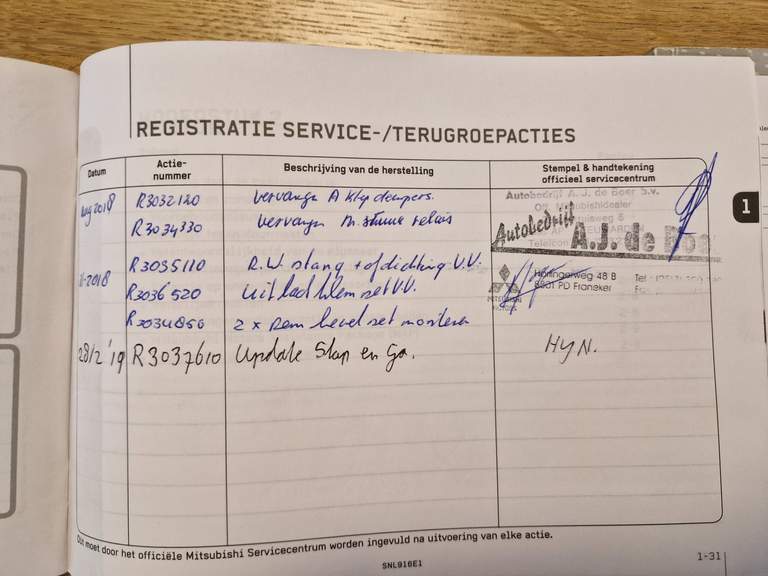 REGISTRATIE SERVICE-/TERUGROEPACTIES
Datum
Actie-
nummer
Beschrijving van de herstelling
Stempel & handtekening
officieel servicecentrum
2018 R3032120 Vervangen A klep dempers.
R3034330 Vervangen relais
Autobedrijf A. J. de Boer B.V.
Autobedrijf A.J. de Boer
-2018 R3035110 R.W stang + afdichting V.V.
R3036520 Uitlaat klem set V.V.
Harlingerweg 48 B
8801 PD Franeker
Tel
R3034856 2 x Rem bevel set monteren
28/2 '19 R3037610 Update Stop en Go. HYN.
1
Dit moet door het officiële Mitsubishi Servicecentrum worden ingevuld na uitvoering van elke actie.
SNL916E1
1-31